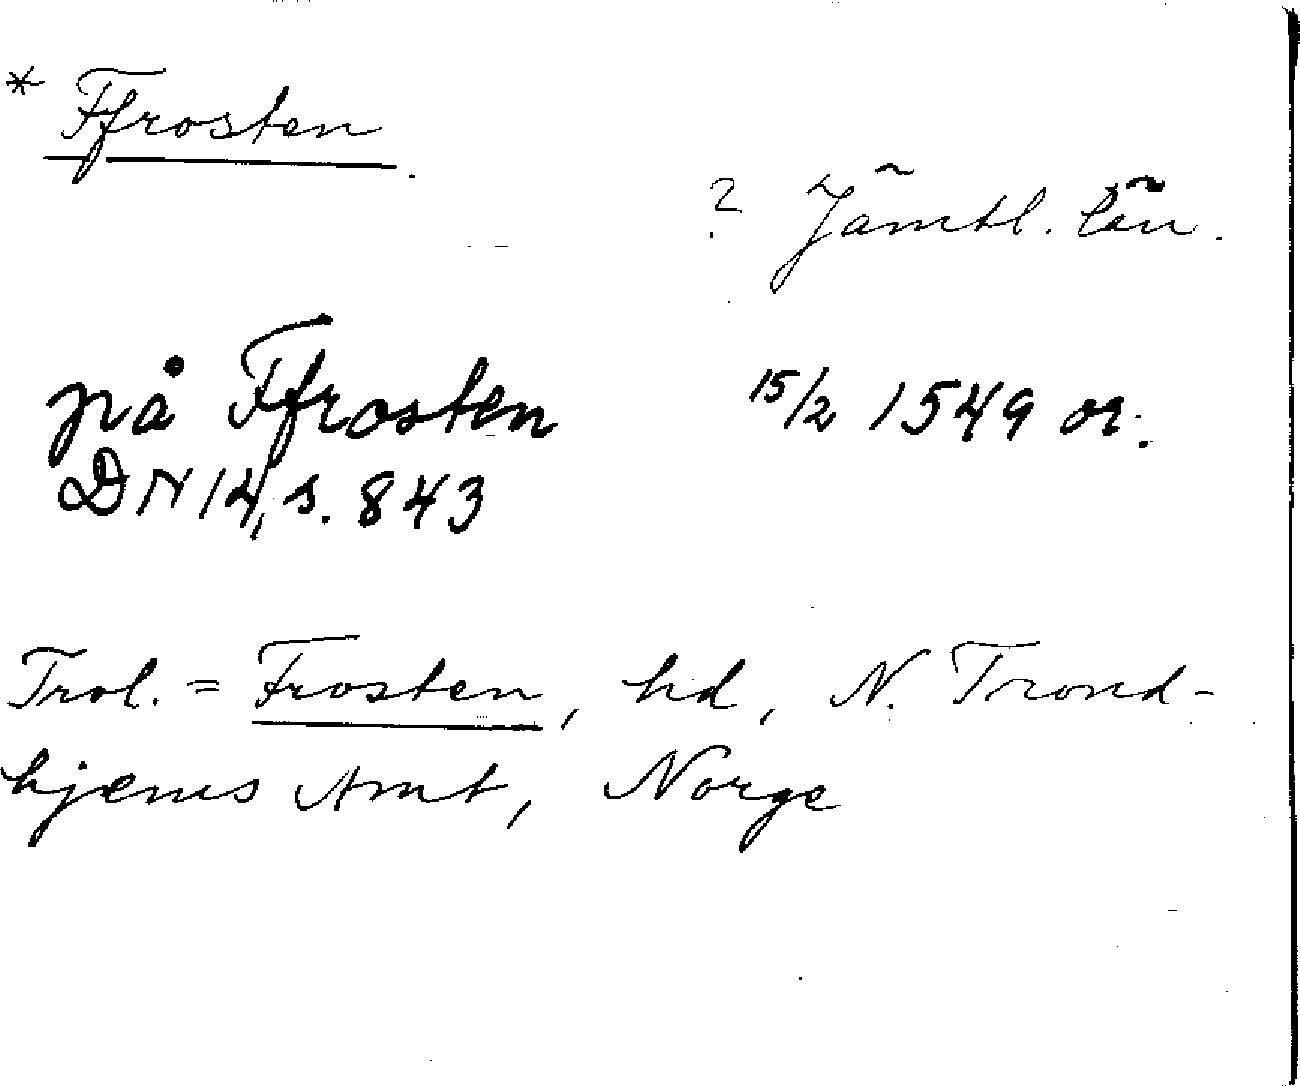 * Ffrosten
? Jämtl. län.
på Ffrosten 15/2 1549 or.
DN 14, s. 843
Trol. = Frosten, hd, N. Trond-
hjems Amt, Norge